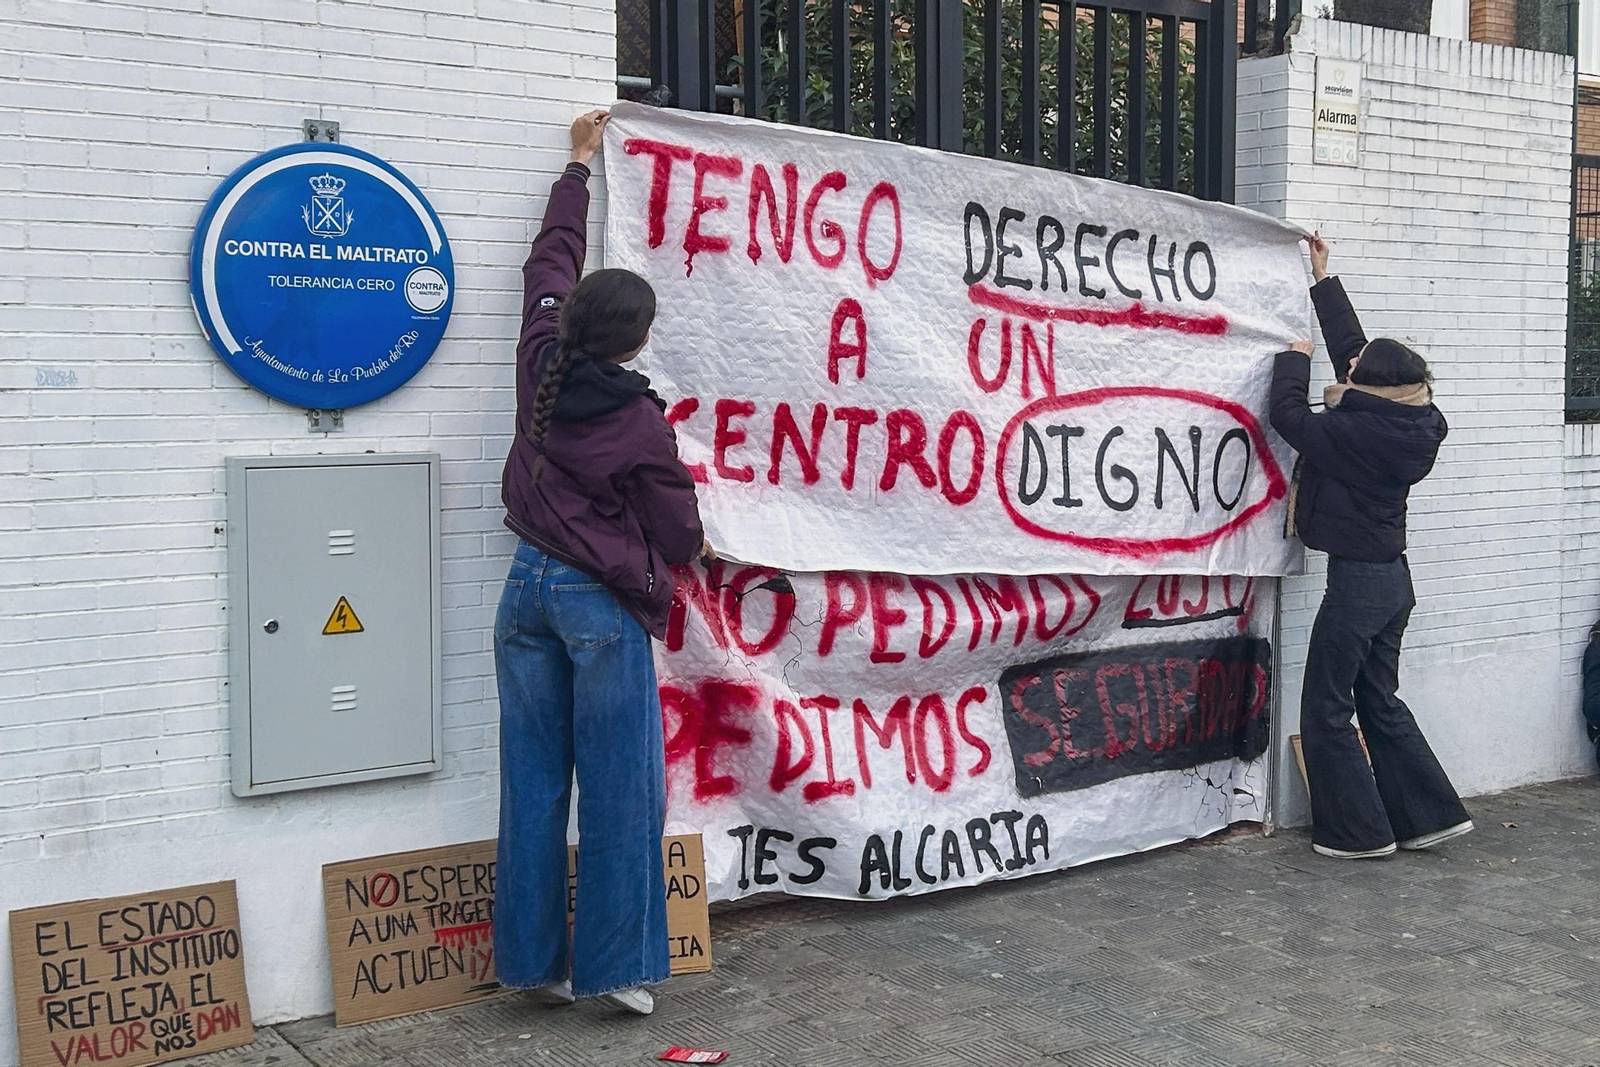 CONTRA EL MALTRATO
TOLERANCIA CERO
CONTRA
EL MALTRATO
TOLERANCIA CERO
Ayuntamiento de La Puebla del Río
securvision
Alarma
TENGO DERECHO
A UN
CENTRO DIGNO
NO PEDIMOS LUJO
PEDIMOS SEGURIDAD
IES ALCARIA
EL ESTADO
DEL INSTITUTO
REFLEJA EL
VALOR QUE NOS DAN
NO ESPERE
A UNA TRAGE
ACTUEN ¡Y
A
AD
CIA